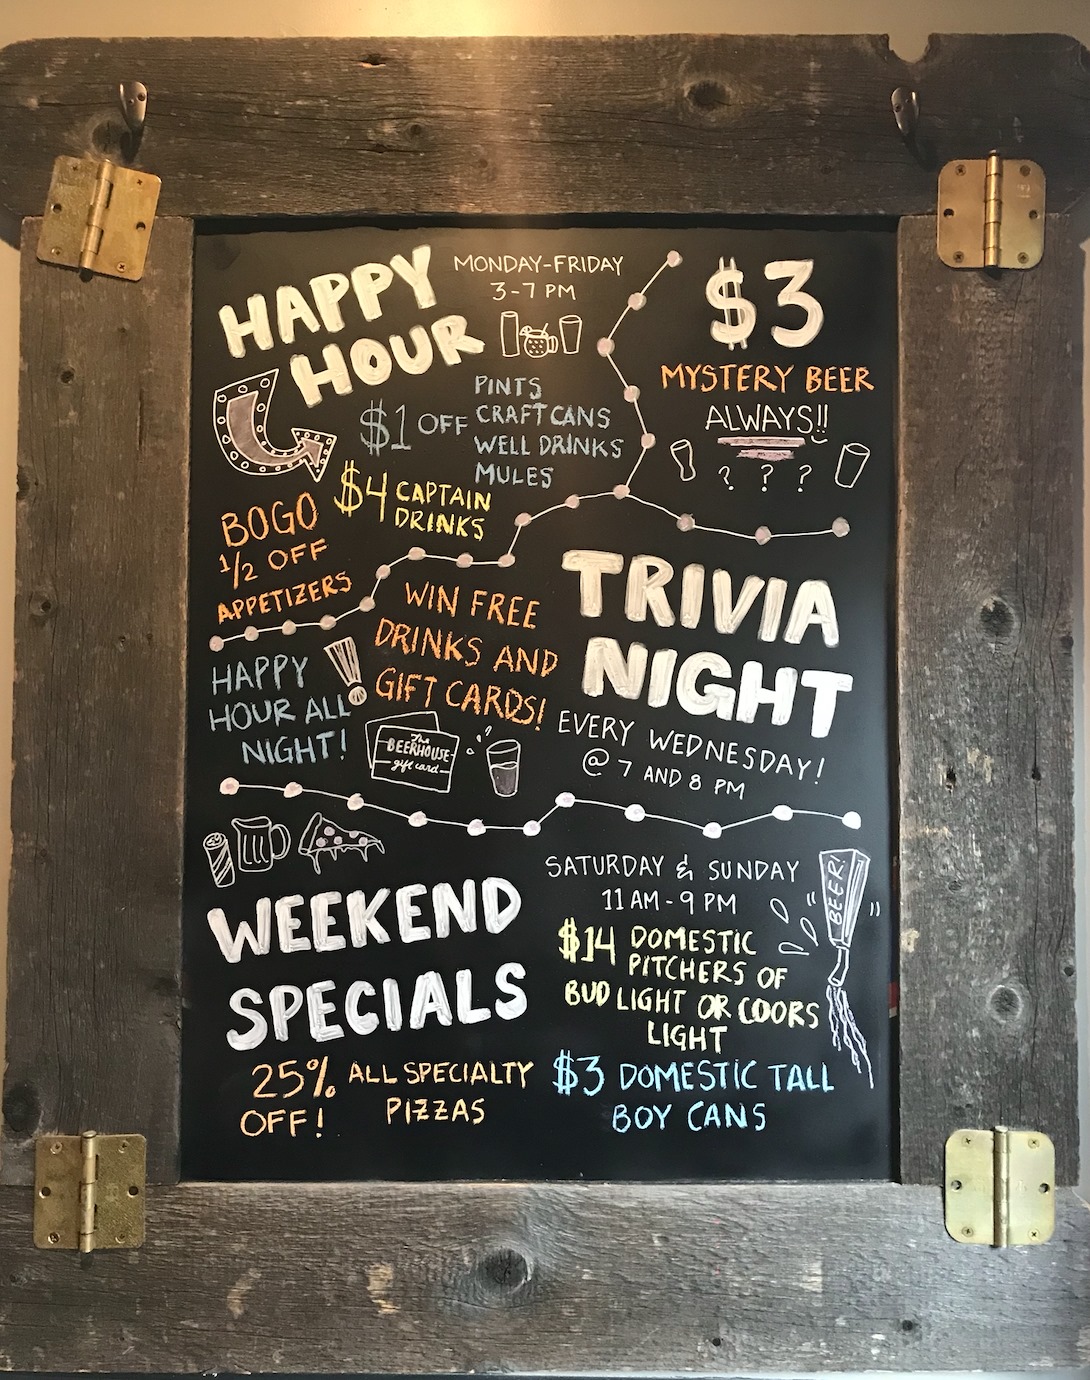 HAPPY
HOUR
MONDAY-FRIDAY
3-7 PM
$1 OFF
PINTS
CRAFT CANS
WELL DRINKS
MULES
$4 CAPTAIN
DRINKS
BOGO
1/2 OFF
APPETIZERS
$3
MYSTERY BEER
ALWAYS!!
? ? ?
TRIVIA
NIGHT
EVERY WEDNESDAY!
@ 7 AND 8 PM
WIN FREE
DRINKS AND
GIFT CARDS!
HAPPY
HOUR ALL
NIGHT!
The
BEERHOUSE
gift card
WEEKEND
SPECIALS
25% ALL SPECIALTY
OFF! PIZZAS
SATURDAY & SUNDAY
11 AM - 9 PM
BEER!
$14 DOMESTIC
PITCHERS OF
BUD LIGHT OR COORS
LIGHT
$3 DOMESTIC TALL
BOY CANS